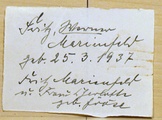 Fritz, Werner
Marienfeld
geb. 25. 3. 1937
Fritz Marienfeld
u. Frau
geb.